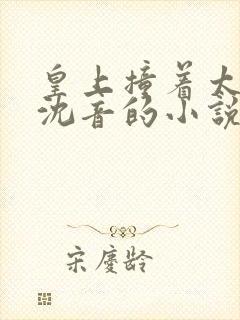 皇上撞着太
沈音的小說
宋慶齡